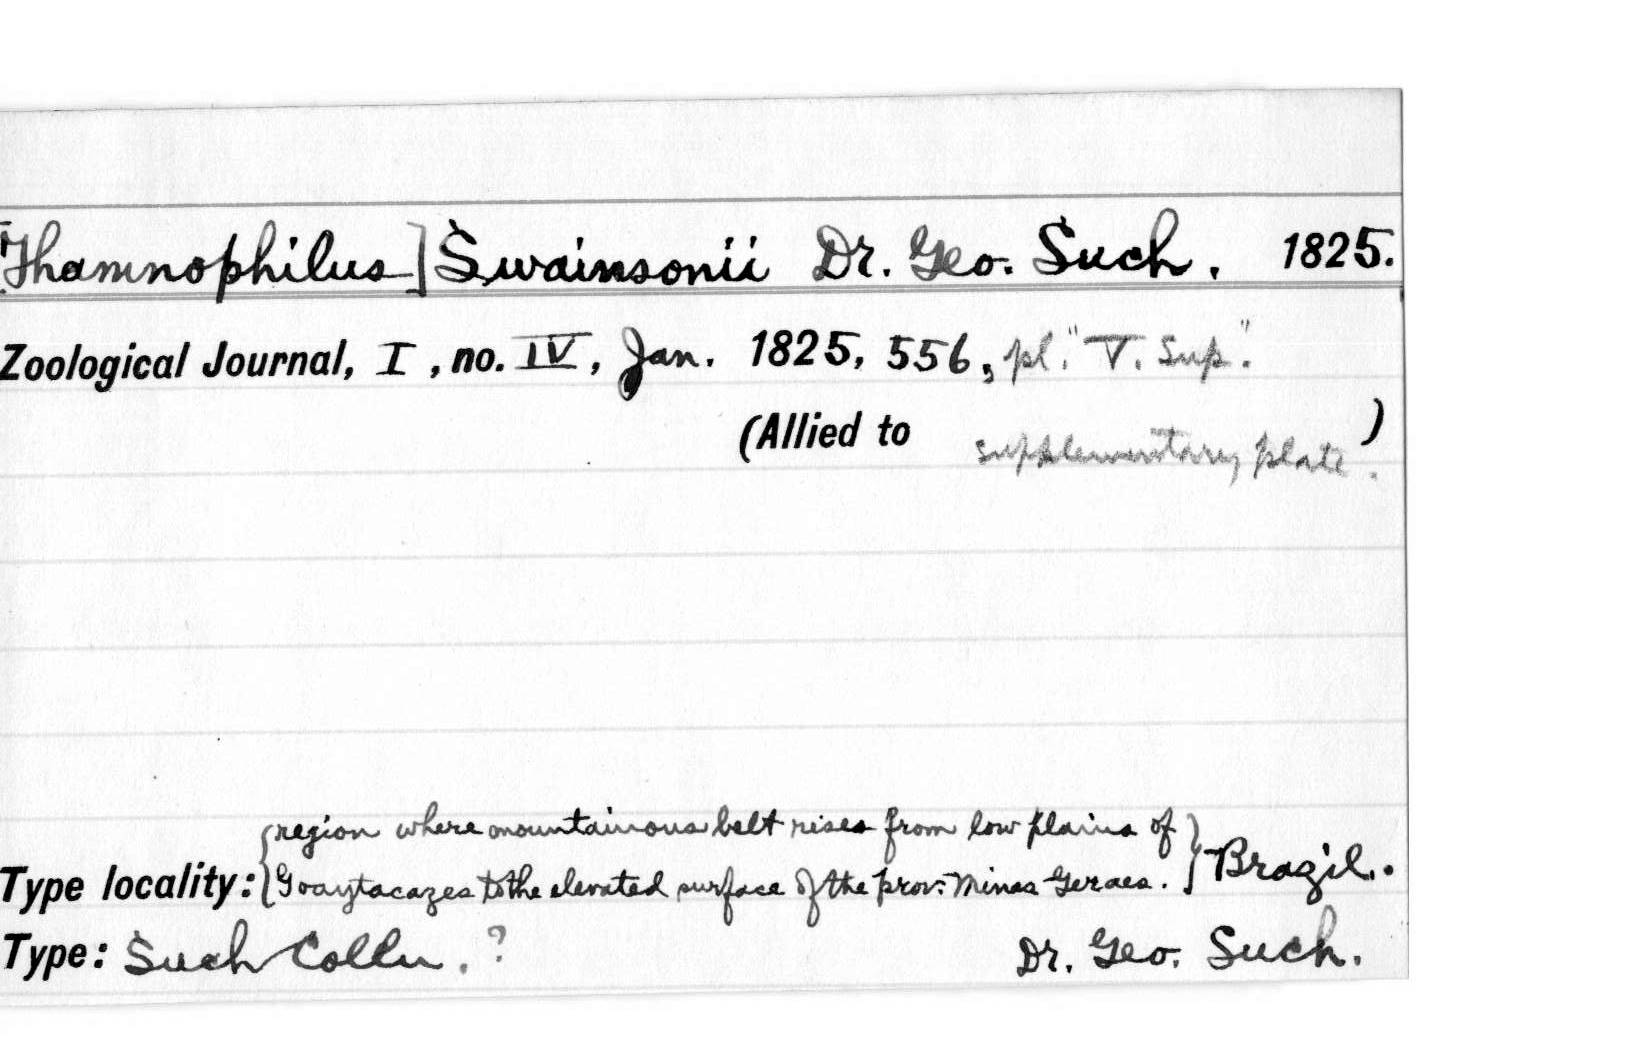 [Thamnophilus] Swainsonii Dr. Geo. Such. 1825.
Zoological Journal, I, no. IV, Jan. 1825, 556, pl. "V. Sup."
(Allied to supplementary plate.)
{region where mountainous belt rises from low plains of
Type locality: Goaytacazes to the elevated surface of the prov. Minas Geraes.} Brazil.
Type: Such Colln. ? Dr. Geo. Such.